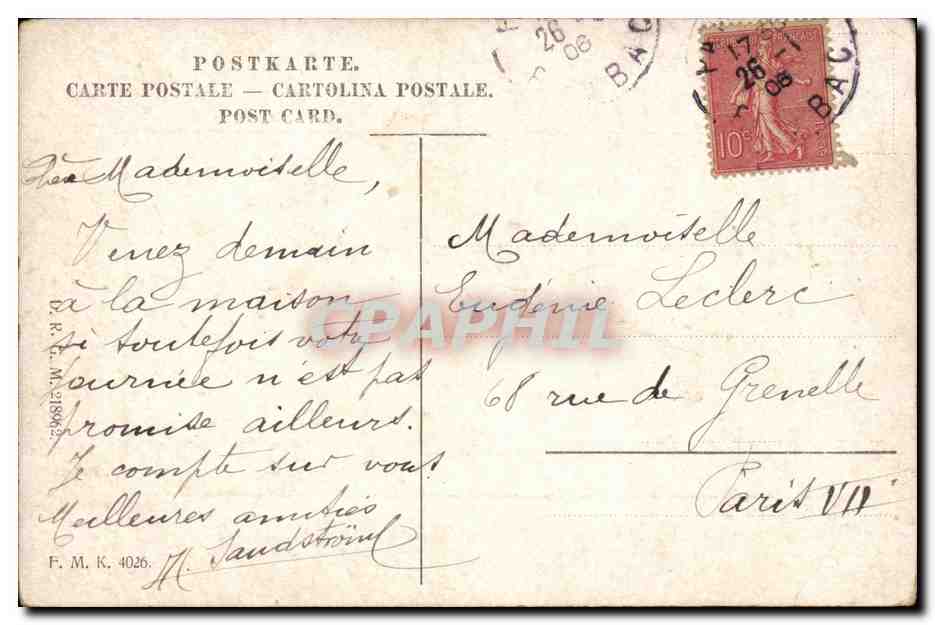 POSTKARTE.
CARTE POSTALE — CARTOLINA POSTALE.
POST CARD.
Mademoiselle,
Venez demain
à la maison
si toutefois votre
journée n'est pas
promise ailleurs.
Je compte sur vous
Meilleures amitiés
H. Sandström
F. M. K. 4026.
D. R. G. M. 218962.
26
06
BAC
17
26 -1
06
BAC
FRANÇAISE
10c
Mademoiselle
Eugénie Leclerc
68 rue de Grenelle
Paris VII
CPAPHIL